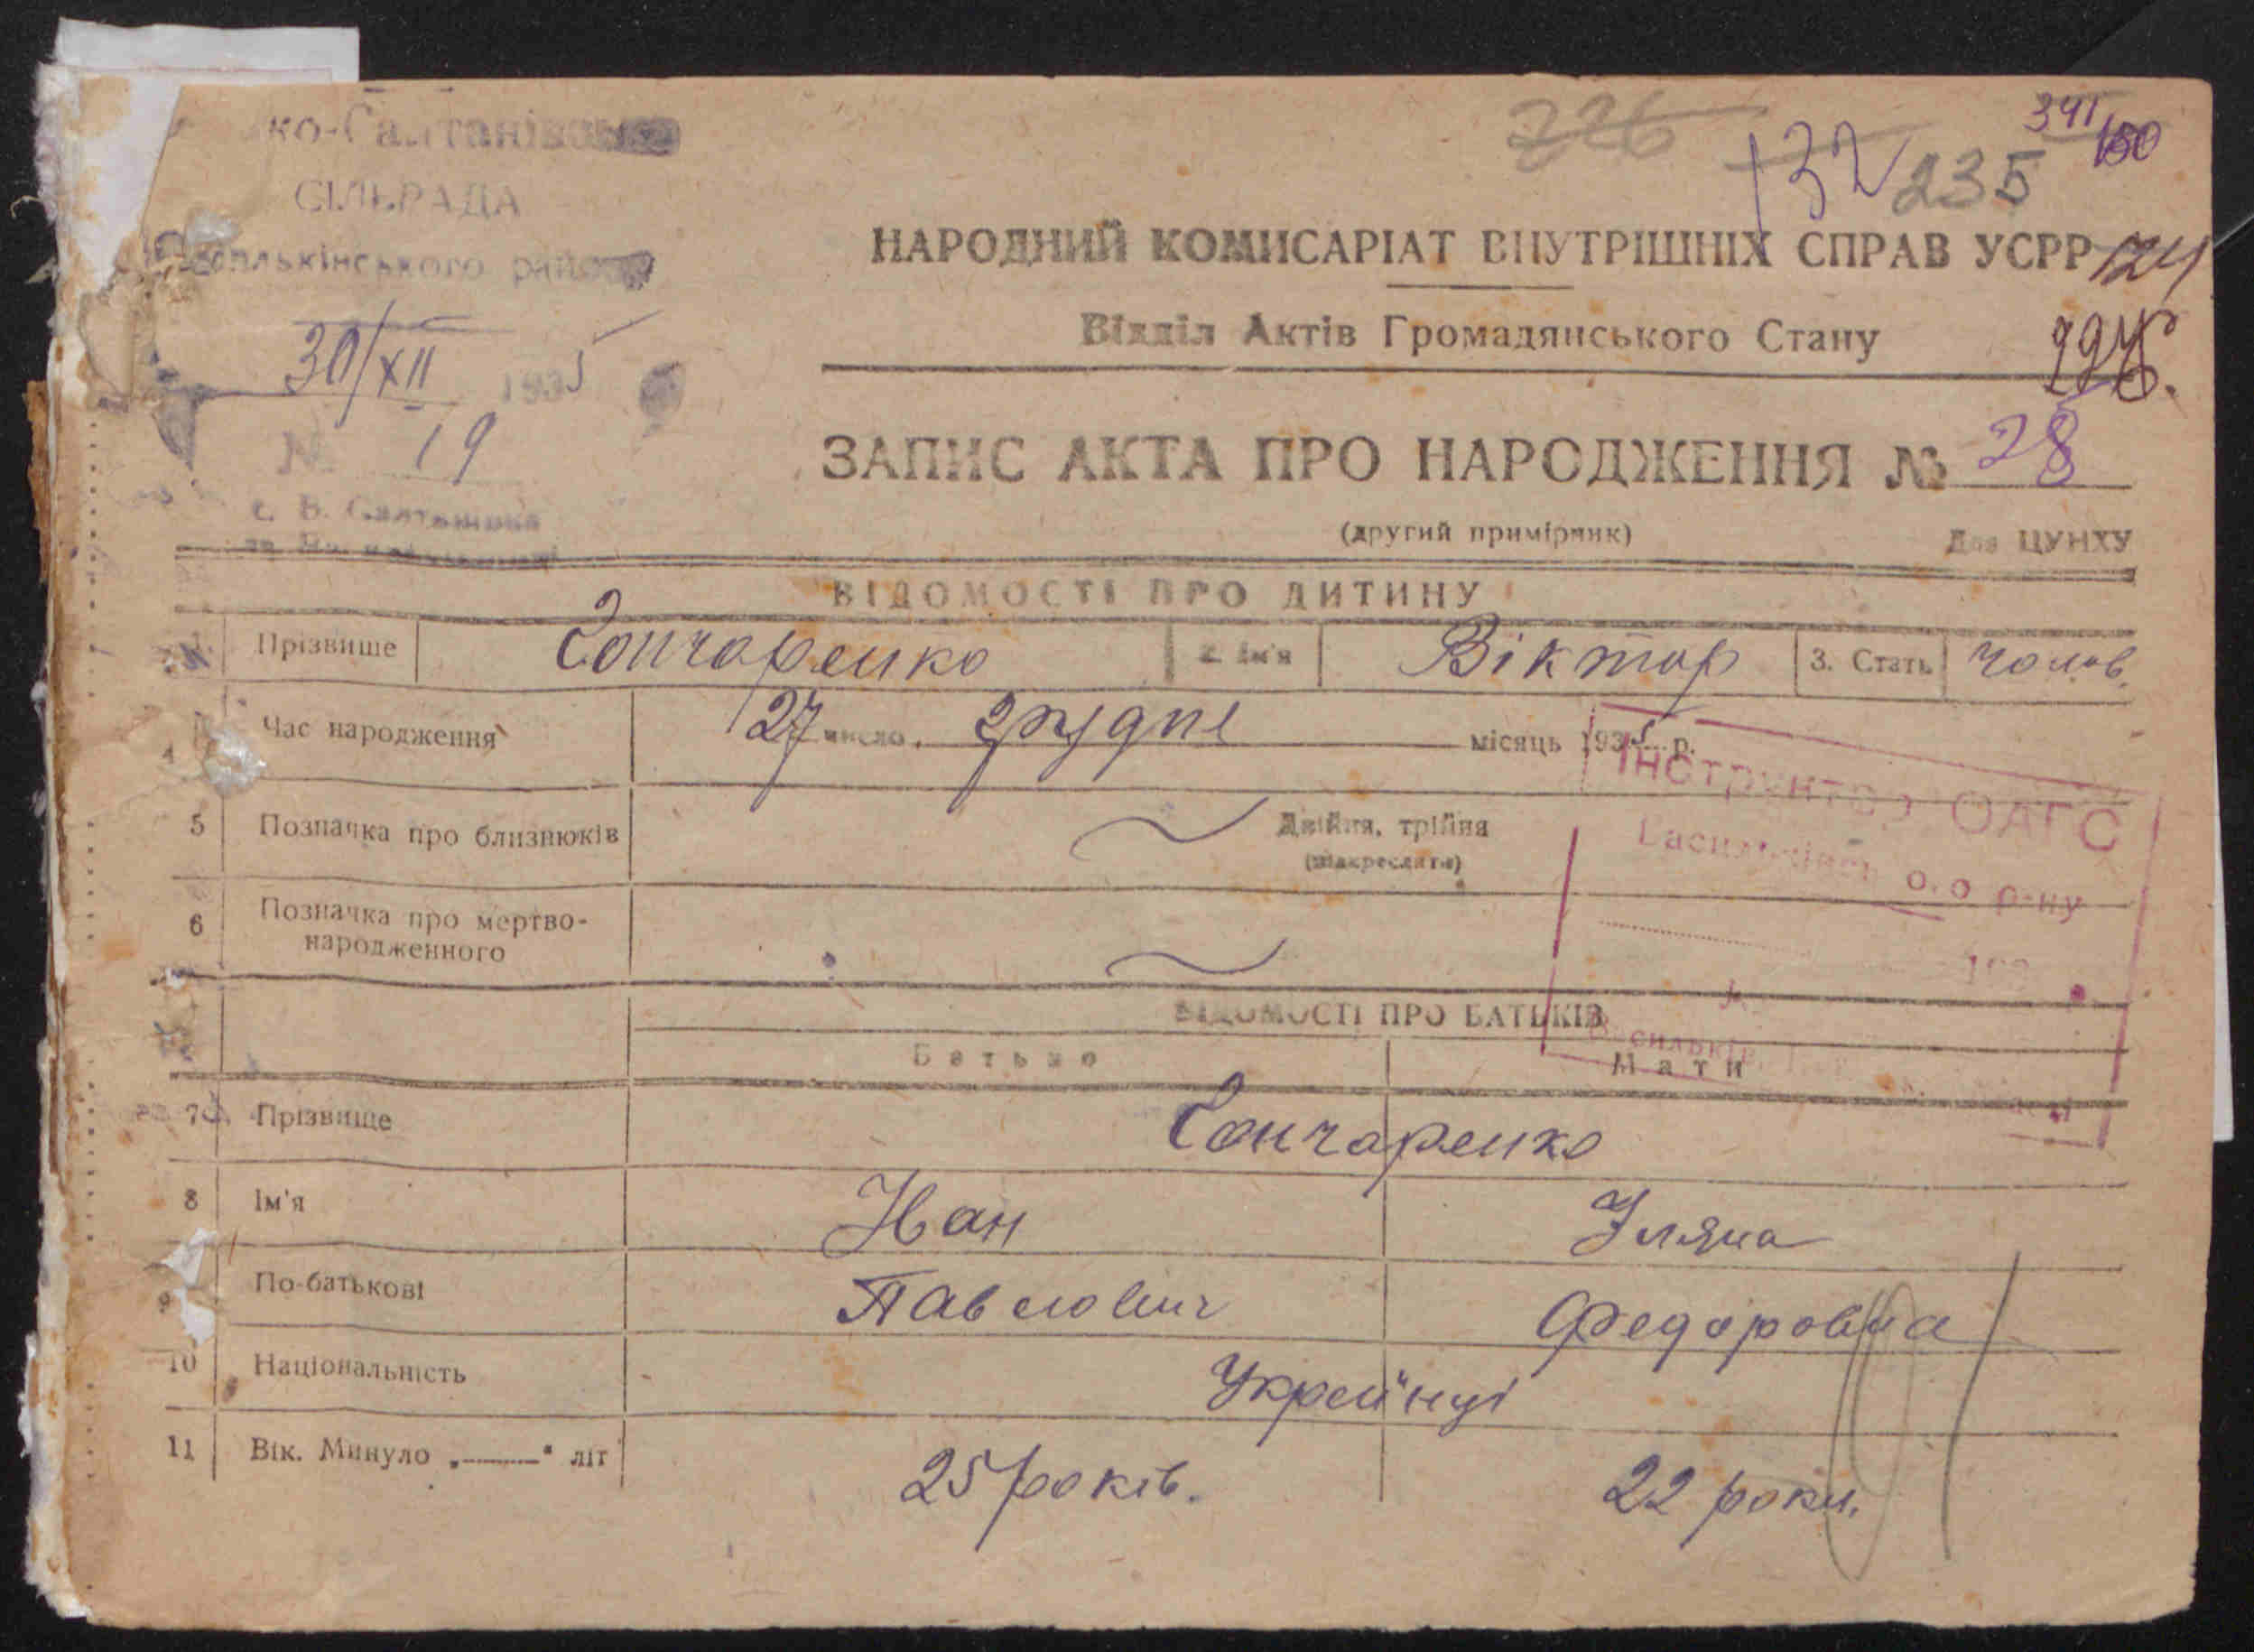 ко-Салтанівська
226 132 235 341 150
СІЛЬРАДА
НАРОДНИЙ КОМИСАРІАТ ВНУТРІШНІХ СПРАВ УСРР 124
Васильківського району
Відділ Актів Громадянського Стану
30/XII 1935
№ 19
ЗАПИС АКТА ПРО НАРОДЖЕННЯ № 28
с. В. Салтанівка
(другий примірник) Для ЦУНХУ
ВІДОМОСТІ ПРО ДИТИНУ
1 Прізвище Гончаренко 2. Ім'я Віктор 3. Стать чолов.
4 Час народження 27 число грудня місяць 1935 р.
Інструктор ОАГС
5 Позначка про близнюків Двійня, трійня
(підкреслити)
р-ну
6 Позначка про мертво-
народженного
ВІДОМОСТІ ПРО БАТЬКІВ
Батько Мати
7 Прізвище Гончаренко
8 Ім'я Іван Уляна
9 По-батькові Павлович Федоровна
10 Національність Украйінці
11 Вік. Минуло „——“ літ 25 років. 22 роки.